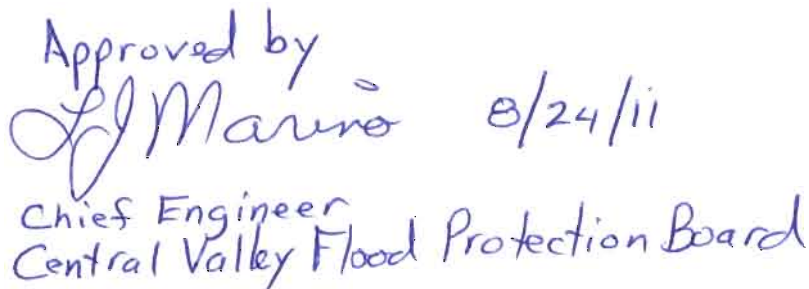 Approved by
LJ Marino 8/24/11
Chief Engineer
Central Valley Flood Protection Board